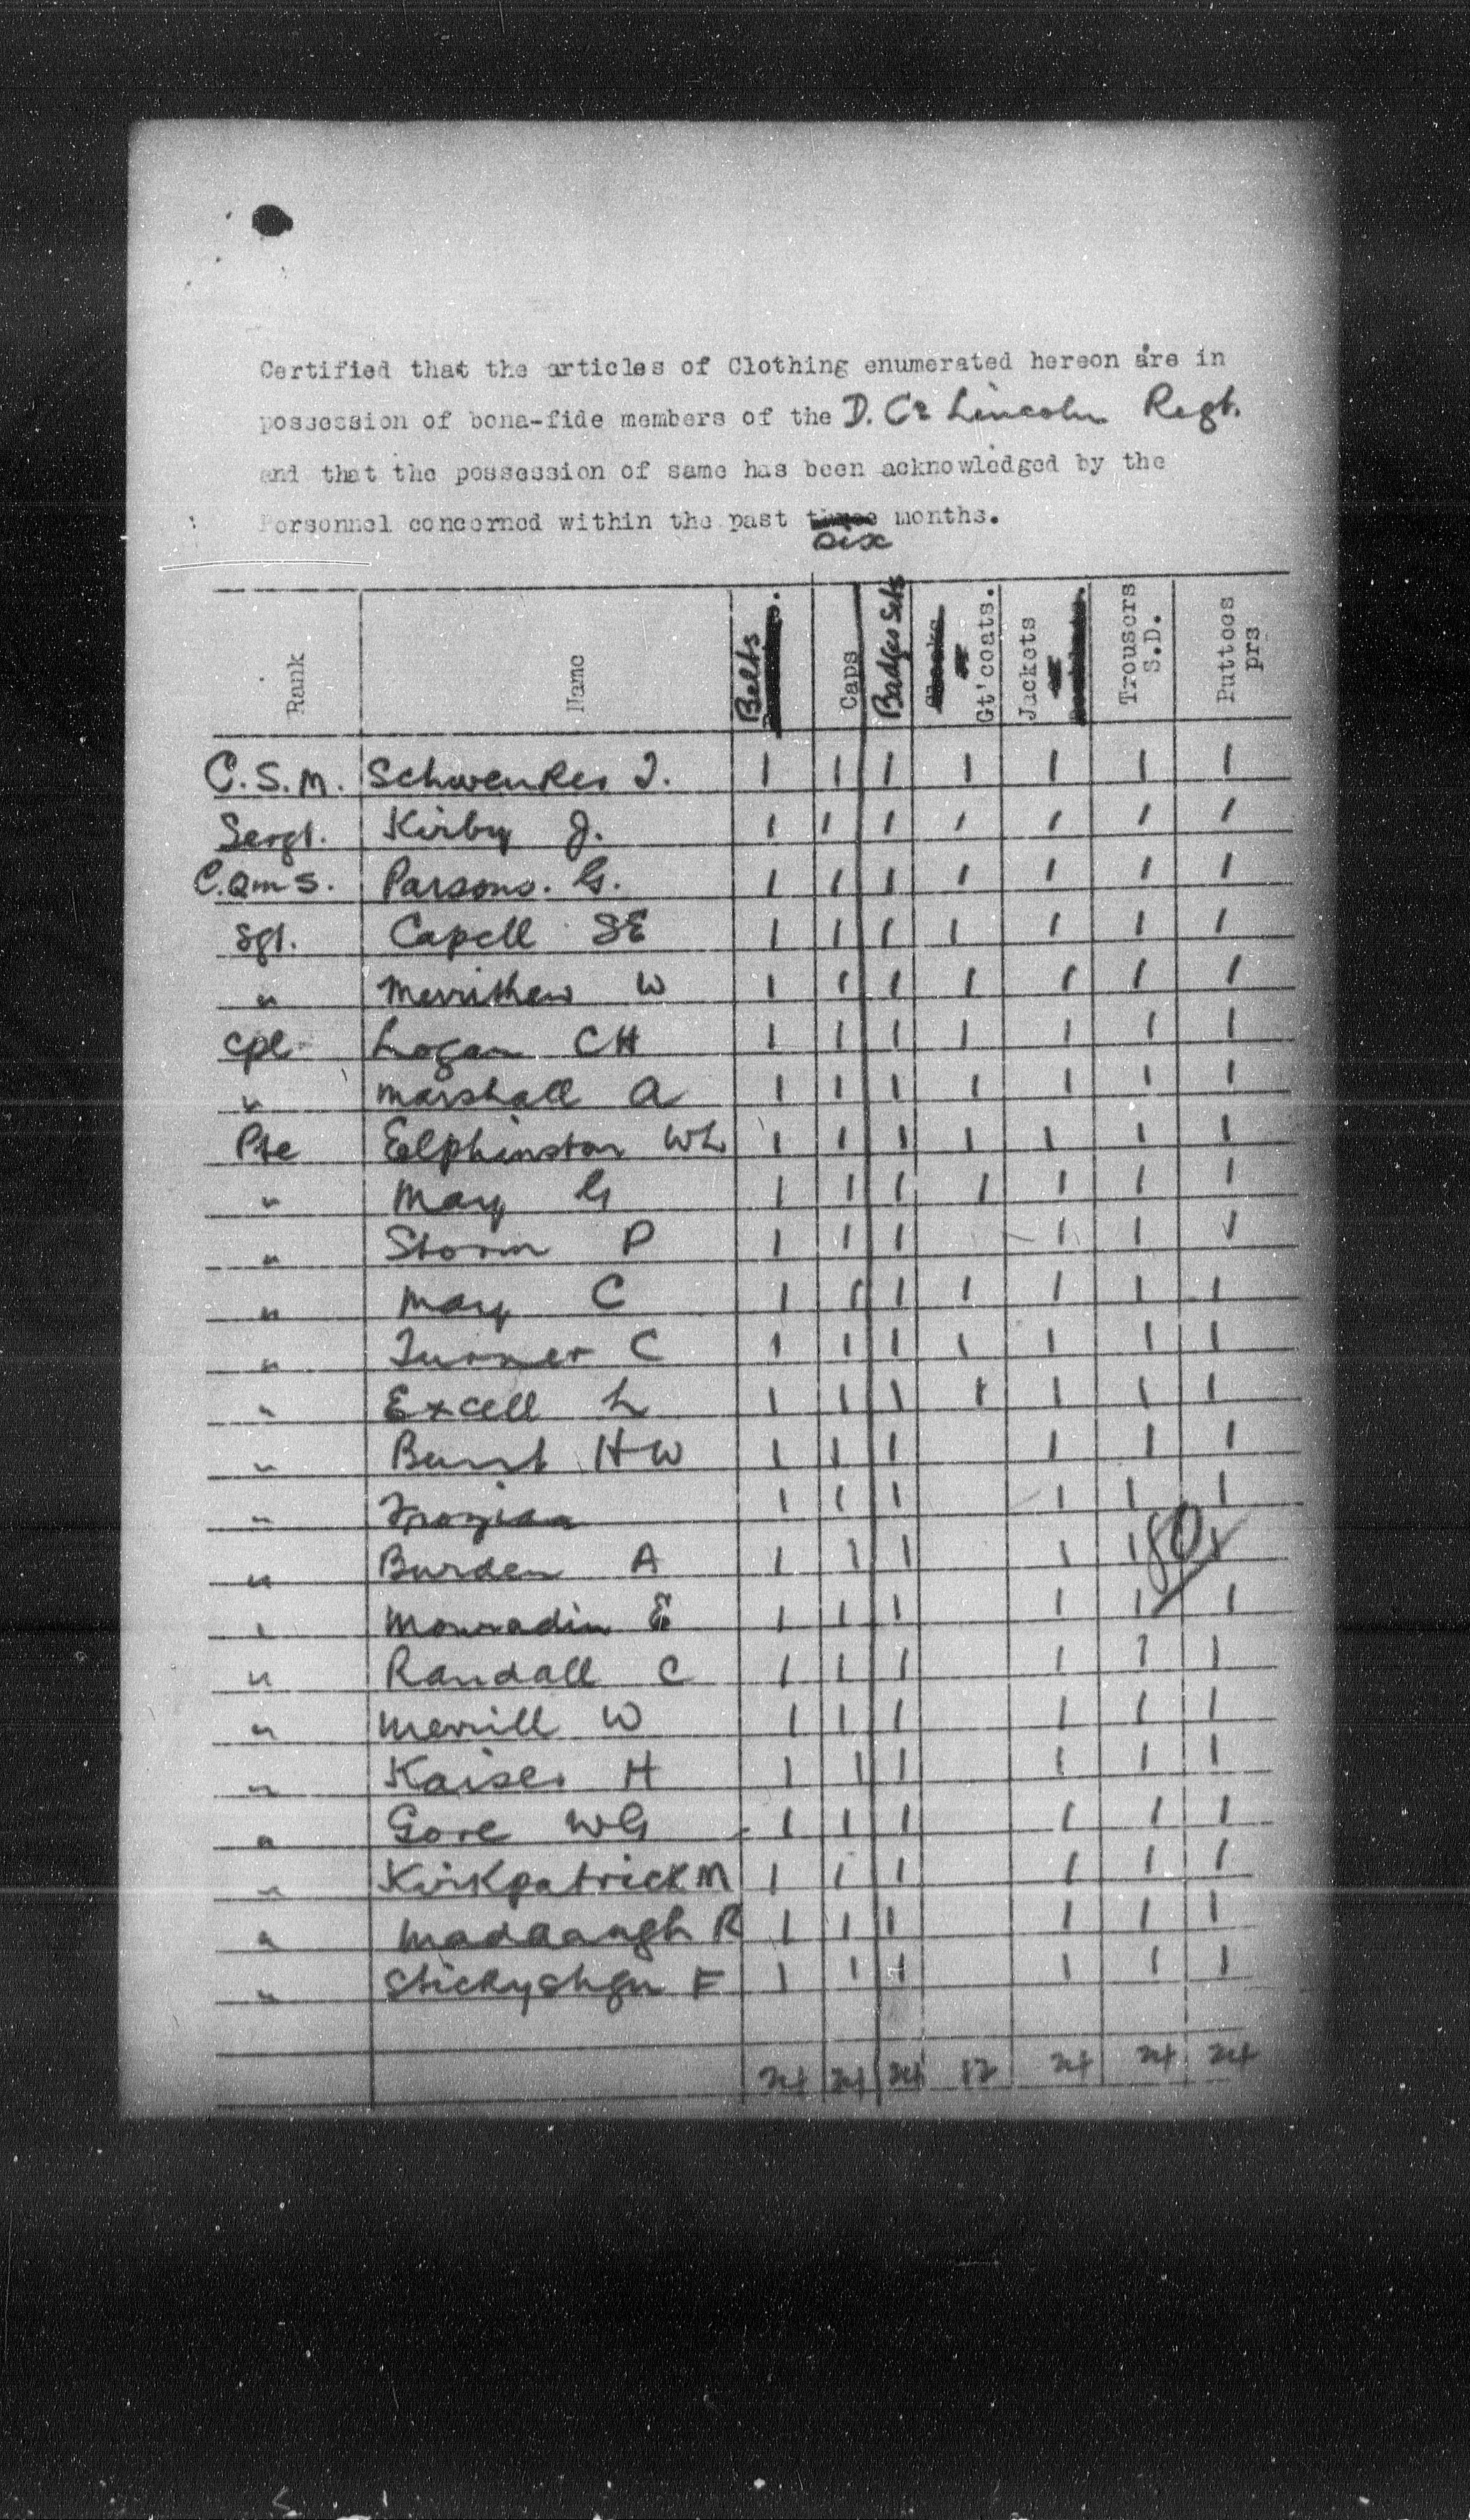 Certified that the articles of Clothing enumerated hereon are in
possession of bona-fide members of the D. Co Lincoln Regt.
and that the possession of same has been acknowledged by the
Personnel concerned within the past three months.
six
Rank Name Belts Caps Badges Sets Gt'coats. Jackets Trousers S.D. Puttees prs
C.S.M. J. 1 1 1 1 1 1 1
Sergt. Kirby J. 1 1 1 1 1 1 1
C.Q.M.S. Parsons. G. 1 1 1 1 1 1 1
Sgt. Capell SE 1 1 1 1 1 1 1
" Merrithew W 1 1 1 1 1 1 1
Cpl Logan CH 1 1 1 1 1 1 1
" Marshall A 1 1 1 1 1 1 1
Pte Eelphinston WL 1 1 1 1 1 1 1
" May G 1 1 1 1 1 1 1
" Storm P 1 1 1 1 1 1
" May C 1 1 1 1 1 1 1
" Turner C 1 1 1 1 1 1 1
" Excell L 1 1 1 1 1 1 1
" Burt HW 1 1 1 1 1 1
" 1 1 1 1 1 1
" Burden A 1 1 1 1 1 1
80
" Mouradin E 1 1 1 1 1 1
" Randall C 1 1 1 1 1 1
" Merrill W 1 1 1 1 1 1
" Kaiser H 1 1 1 1 1 1
" Gore WG 1 1 1 1 1 1
" Kirkpatrick M 1 1 1 1 1 1
" R 1 1 1 1 1 1
" F 1 1 1 1 1 1
24 24 24 12 24 24 24